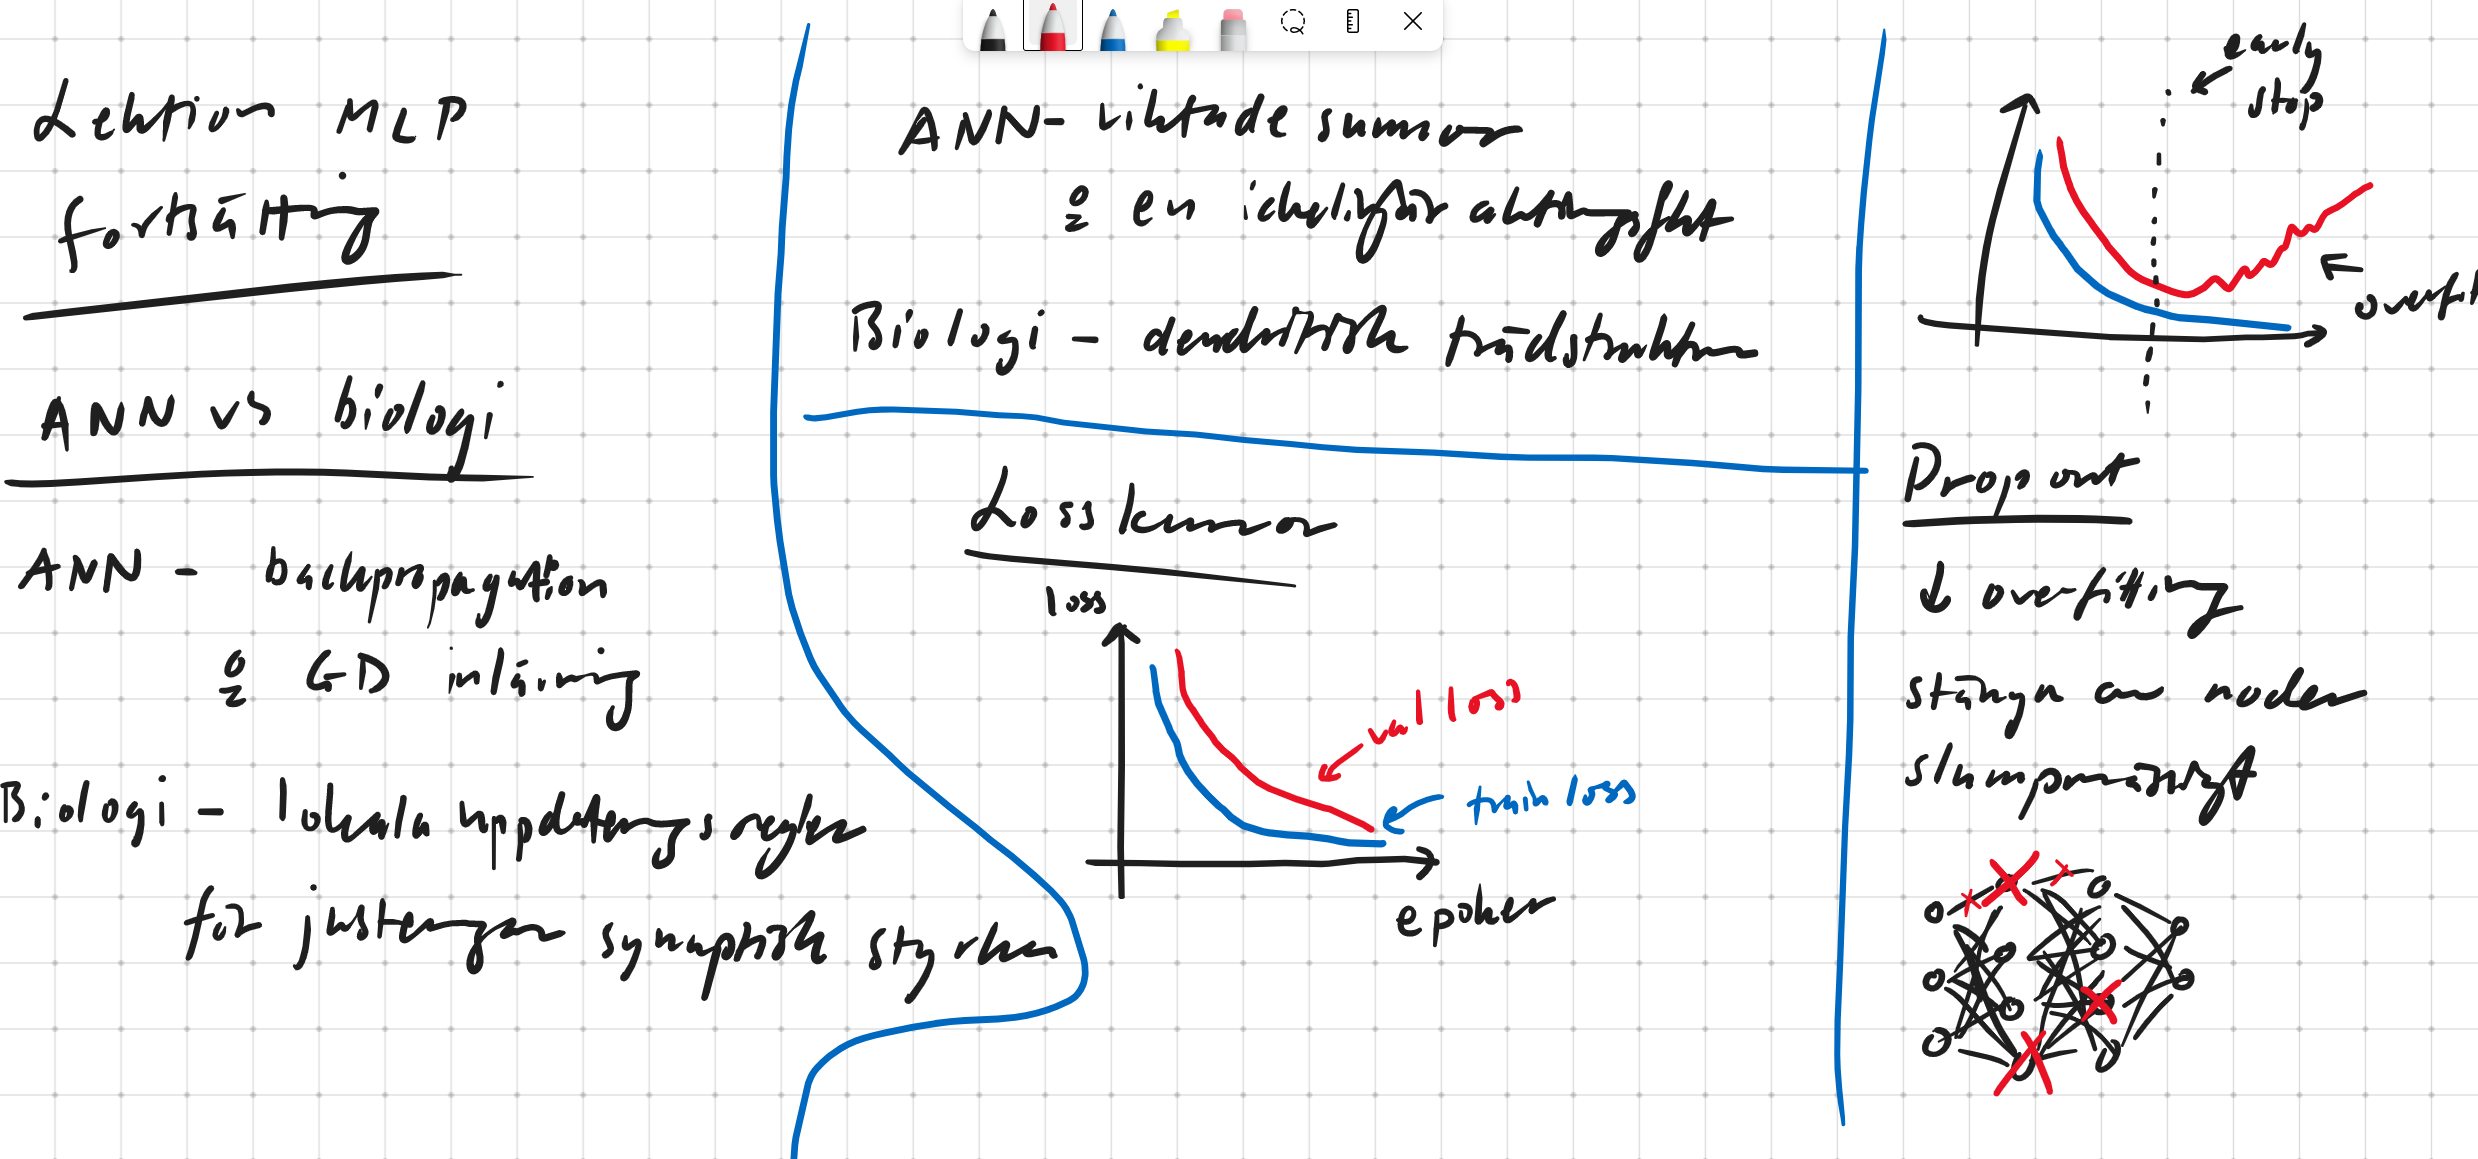 Lektion MLP
fortsättning
ANN vs biologi
ANN - backpropagation
& GD inlärning
Biologi - lokala uppdateringsregler
för justeringar synaptisk styrka
ANN - viktade summor
& en ickelinjär aktiveringsfkt
Biologi - dendritisk trädstruktur
Loss kurvor
loss
val loss
train loss
epoker
early
stop
overfit
Dropout
↓ overfitting
stänga av noder
slumpmässigt